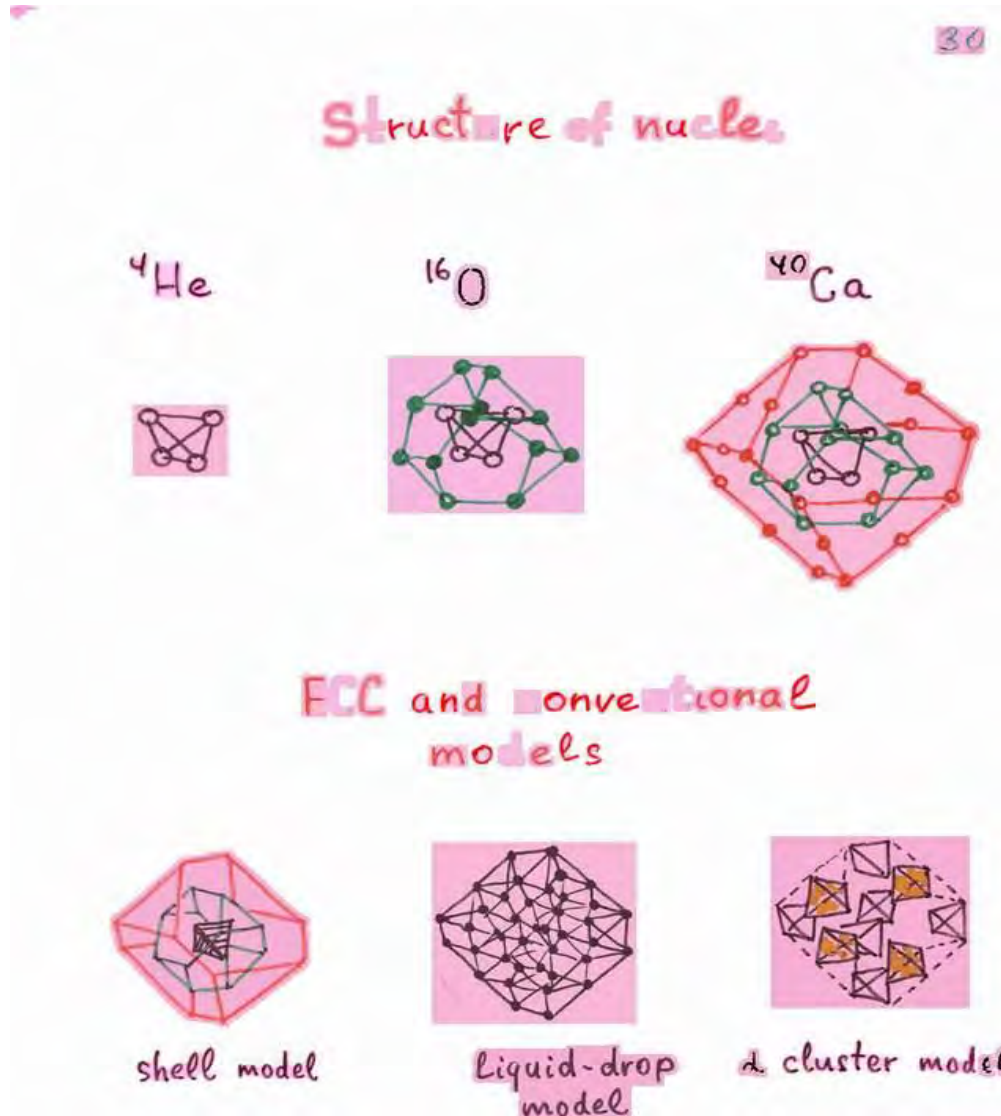 30
Structure of nuclei
⁴He
¹⁶O
⁴⁰Ca
FCC and conventional
models
shell model
Liquid-drop
model
α cluster model